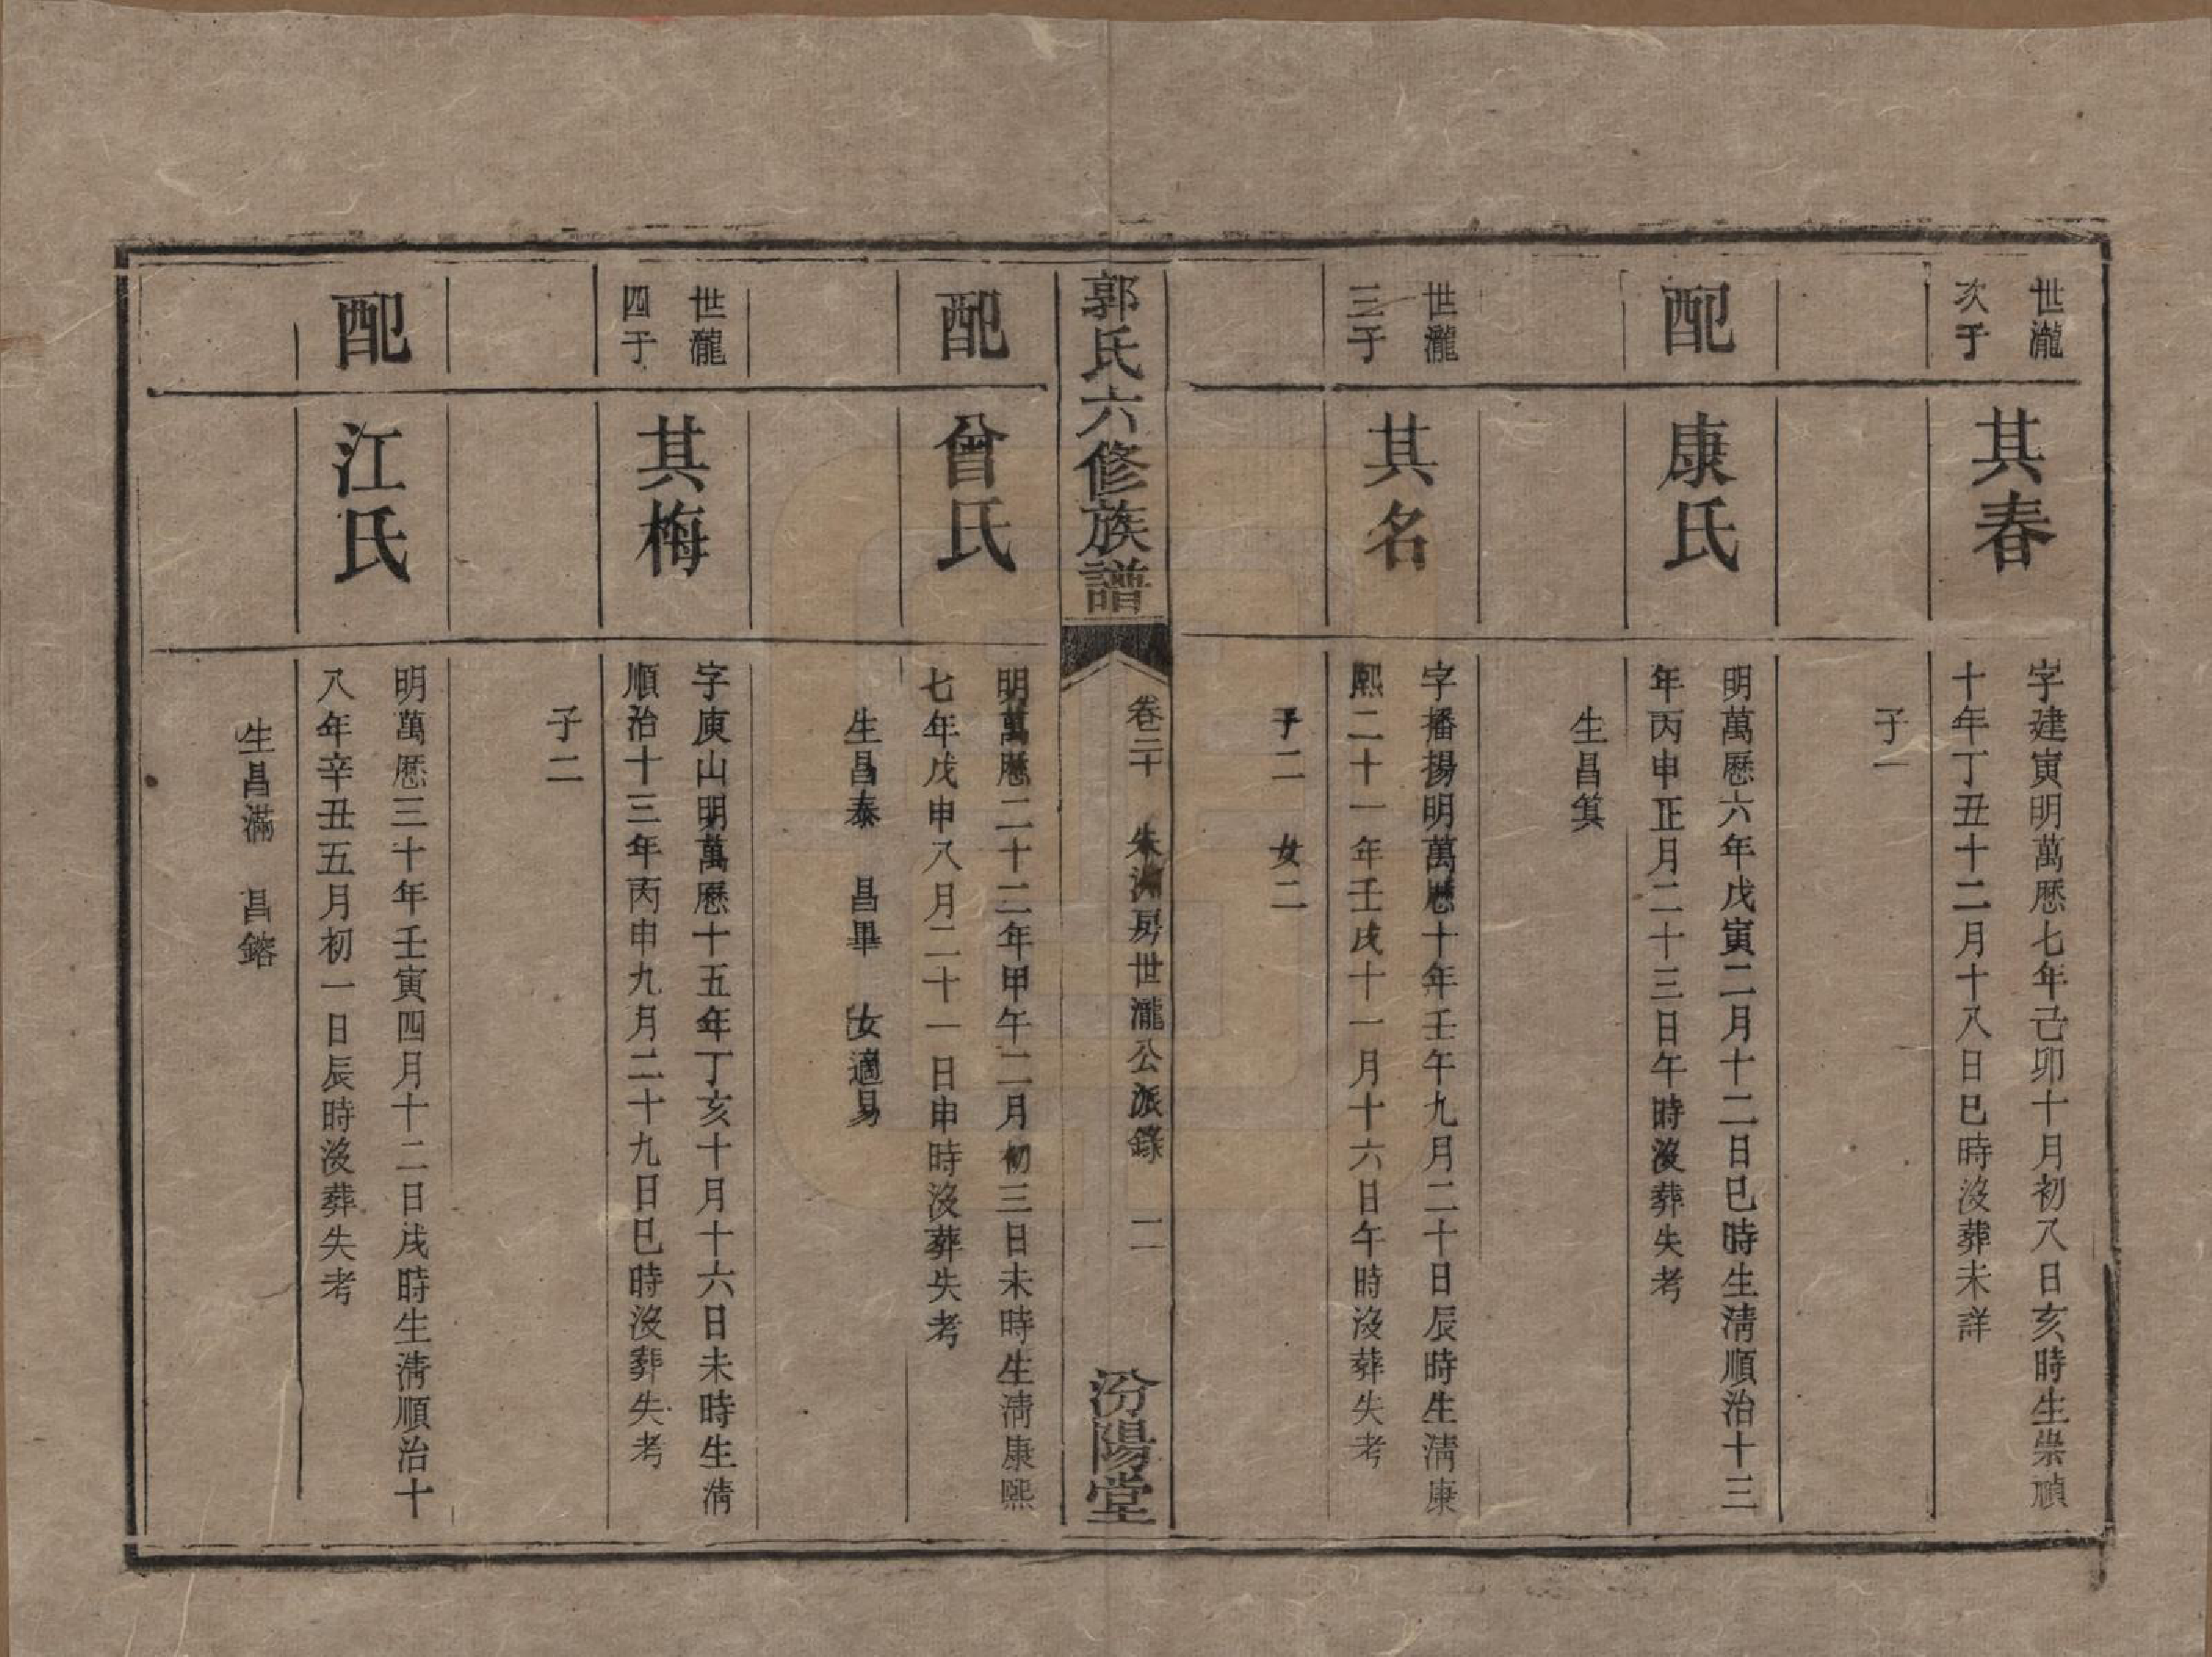 世瀧
次子
其春
字建寅明萬歷七年己卯十月初八日亥時生崇禎
十年丁丑十二月十八日巳時沒葬未詳
子一
配
康氏
明萬歷六年戊寅二月十二日巳時生淸順治十三
年丙申正月二十三日午時沒葬失考
生昌箕
世瀧
三子
其名
字播揚明萬歷十年壬午九月二十日辰時生淸康
熙二十一年壬戌十一月十六日午時沒葬失考
子二　女二
郭氏六修族譜
卷三十　朱 房世瀧公派錄　二
汾陽堂
配
曾氏
明萬歷二十二年甲午二月初三日未時生淸康熙
七年戊申八月二十一日申時沒葬失考
生昌泰　昌畢　女適易
世瀧
四子
其梅
字庾山明萬歷十五年丁亥十月十六日未時生淸
順治十三年丙申九月二十九日巳時沒葬失考
子二
配
江氏
明萬歷三十年壬寅四月十二日戌時生淸順治十
八年辛丑五月初一日辰時沒葬失考
生昌滿　昌鎔